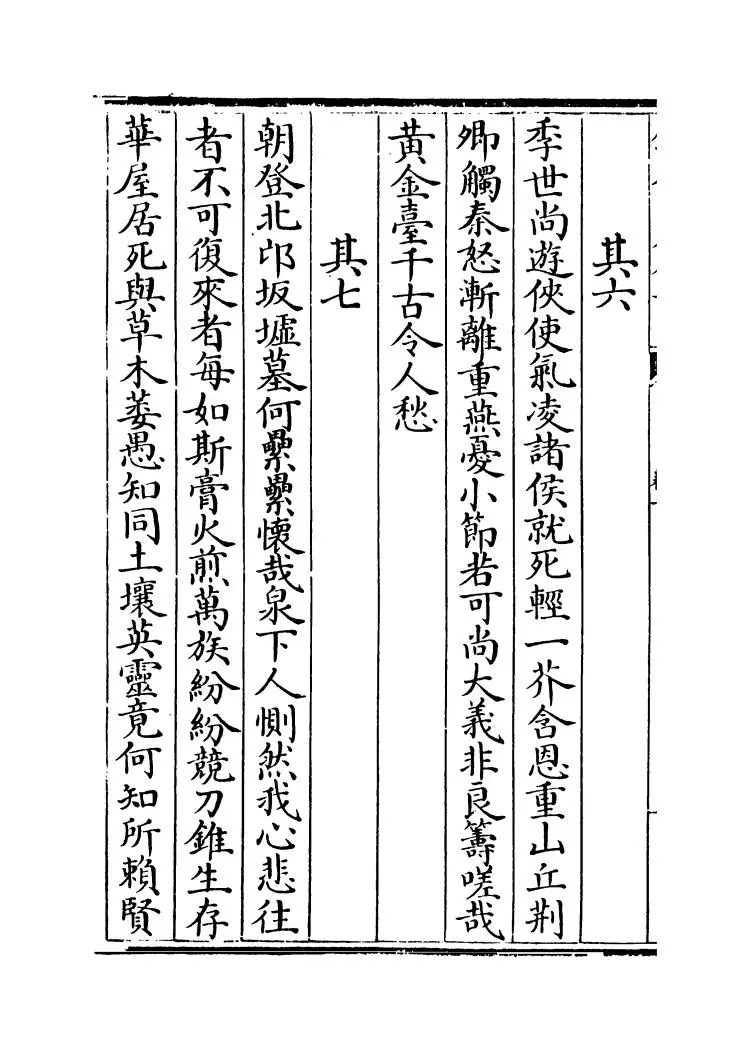 其六
季世尚遊俠使氣凌諸侯就死輕一芥含恩重山丘荆
卿觸秦怒漸離重燕憂小節若可尚大義非良籌嗟哉
黄金臺千古令人愁
其七
朝登北邙坂墟墓何纍纍懷哉泉下人惻然我心悲往
者不可復來者每如斯膏火煎萬族紛紛競刀錐生存
華屋居死與草木萎愚知同土壤英靈竟何知所賴賢